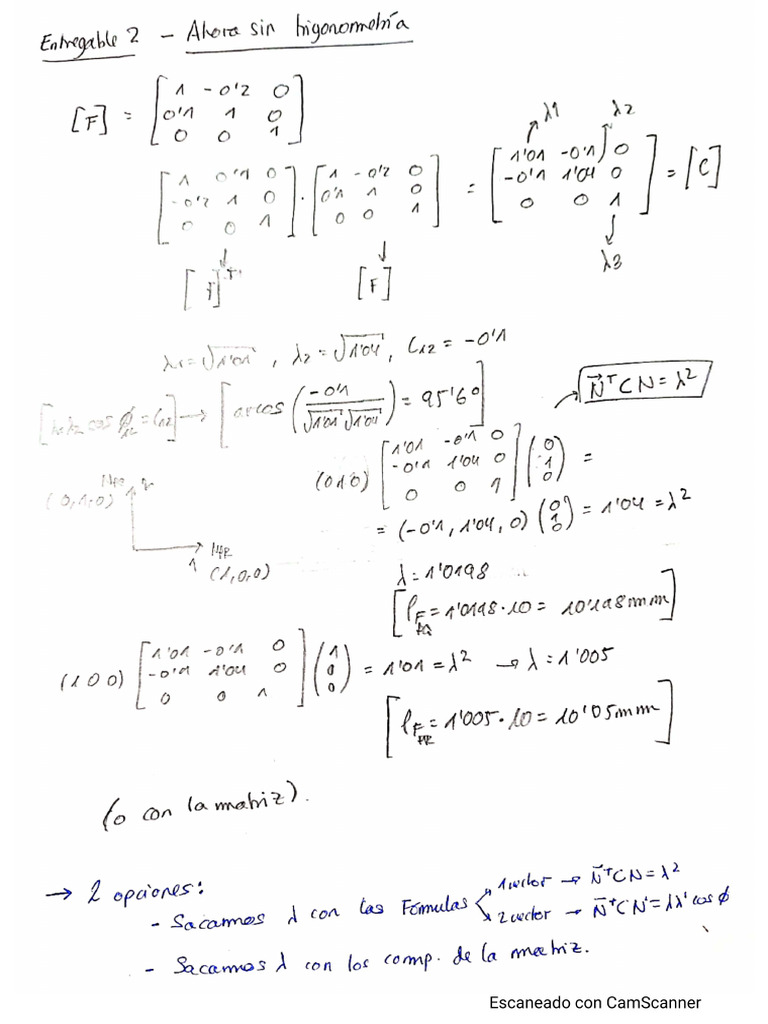 Entregable 2 - Ahora sin trigonometría
[F] = [1 -0'2 0
0'1 1 0
0 0 1]
[1 0'1 0
-0'2 1 0
0 0 1] · [1 -0'2 0
0'1 1 0
0 0 1] = [1'01 -0'1 0
-0'1 1'04 0
0 0 1] = [C]
λ1 λ2
λ3
[F]ᵀ [F]
λ1 = √1'01 , λ2 = √1'04 , C12 = -0'1
[λ1λ2 cos ϕ12 = C12] → [arcos (-0'1 / √1'01 √1'04) = 95'6º]
N⃗ᵀ C N = λ²
(0 1 0) [1'01 -0'1 0
-0'1 1'04 0
0 0 1] (0
1
0) =
= (-0'1, 1'04, 0) (0
1
0) = 1'04 = λ²
(0,1,0) 2
1
(1,0,0)
λ = 1'0198
[lF = 1'0198 · 10 = 10'198 mm]
(1 0 0) [1'01 -0'1 0
-0'1 1'04 0
0 0 1] (1
0
0) = 1'01 = λ² → λ = 1'005
[lF = 1'005 · 10 = 10'05 mm]
(o con la matriz).
→ 2 opciones:
- Sacamos λ con las Fórmulas
1 vector → N⃗ᵀ C N = λ²
2 vector → N⃗ᵀ C N' = λλ' cos ϕ
- Sacamos λ con los comp. de la matriz.
Escaneado con CamScanner